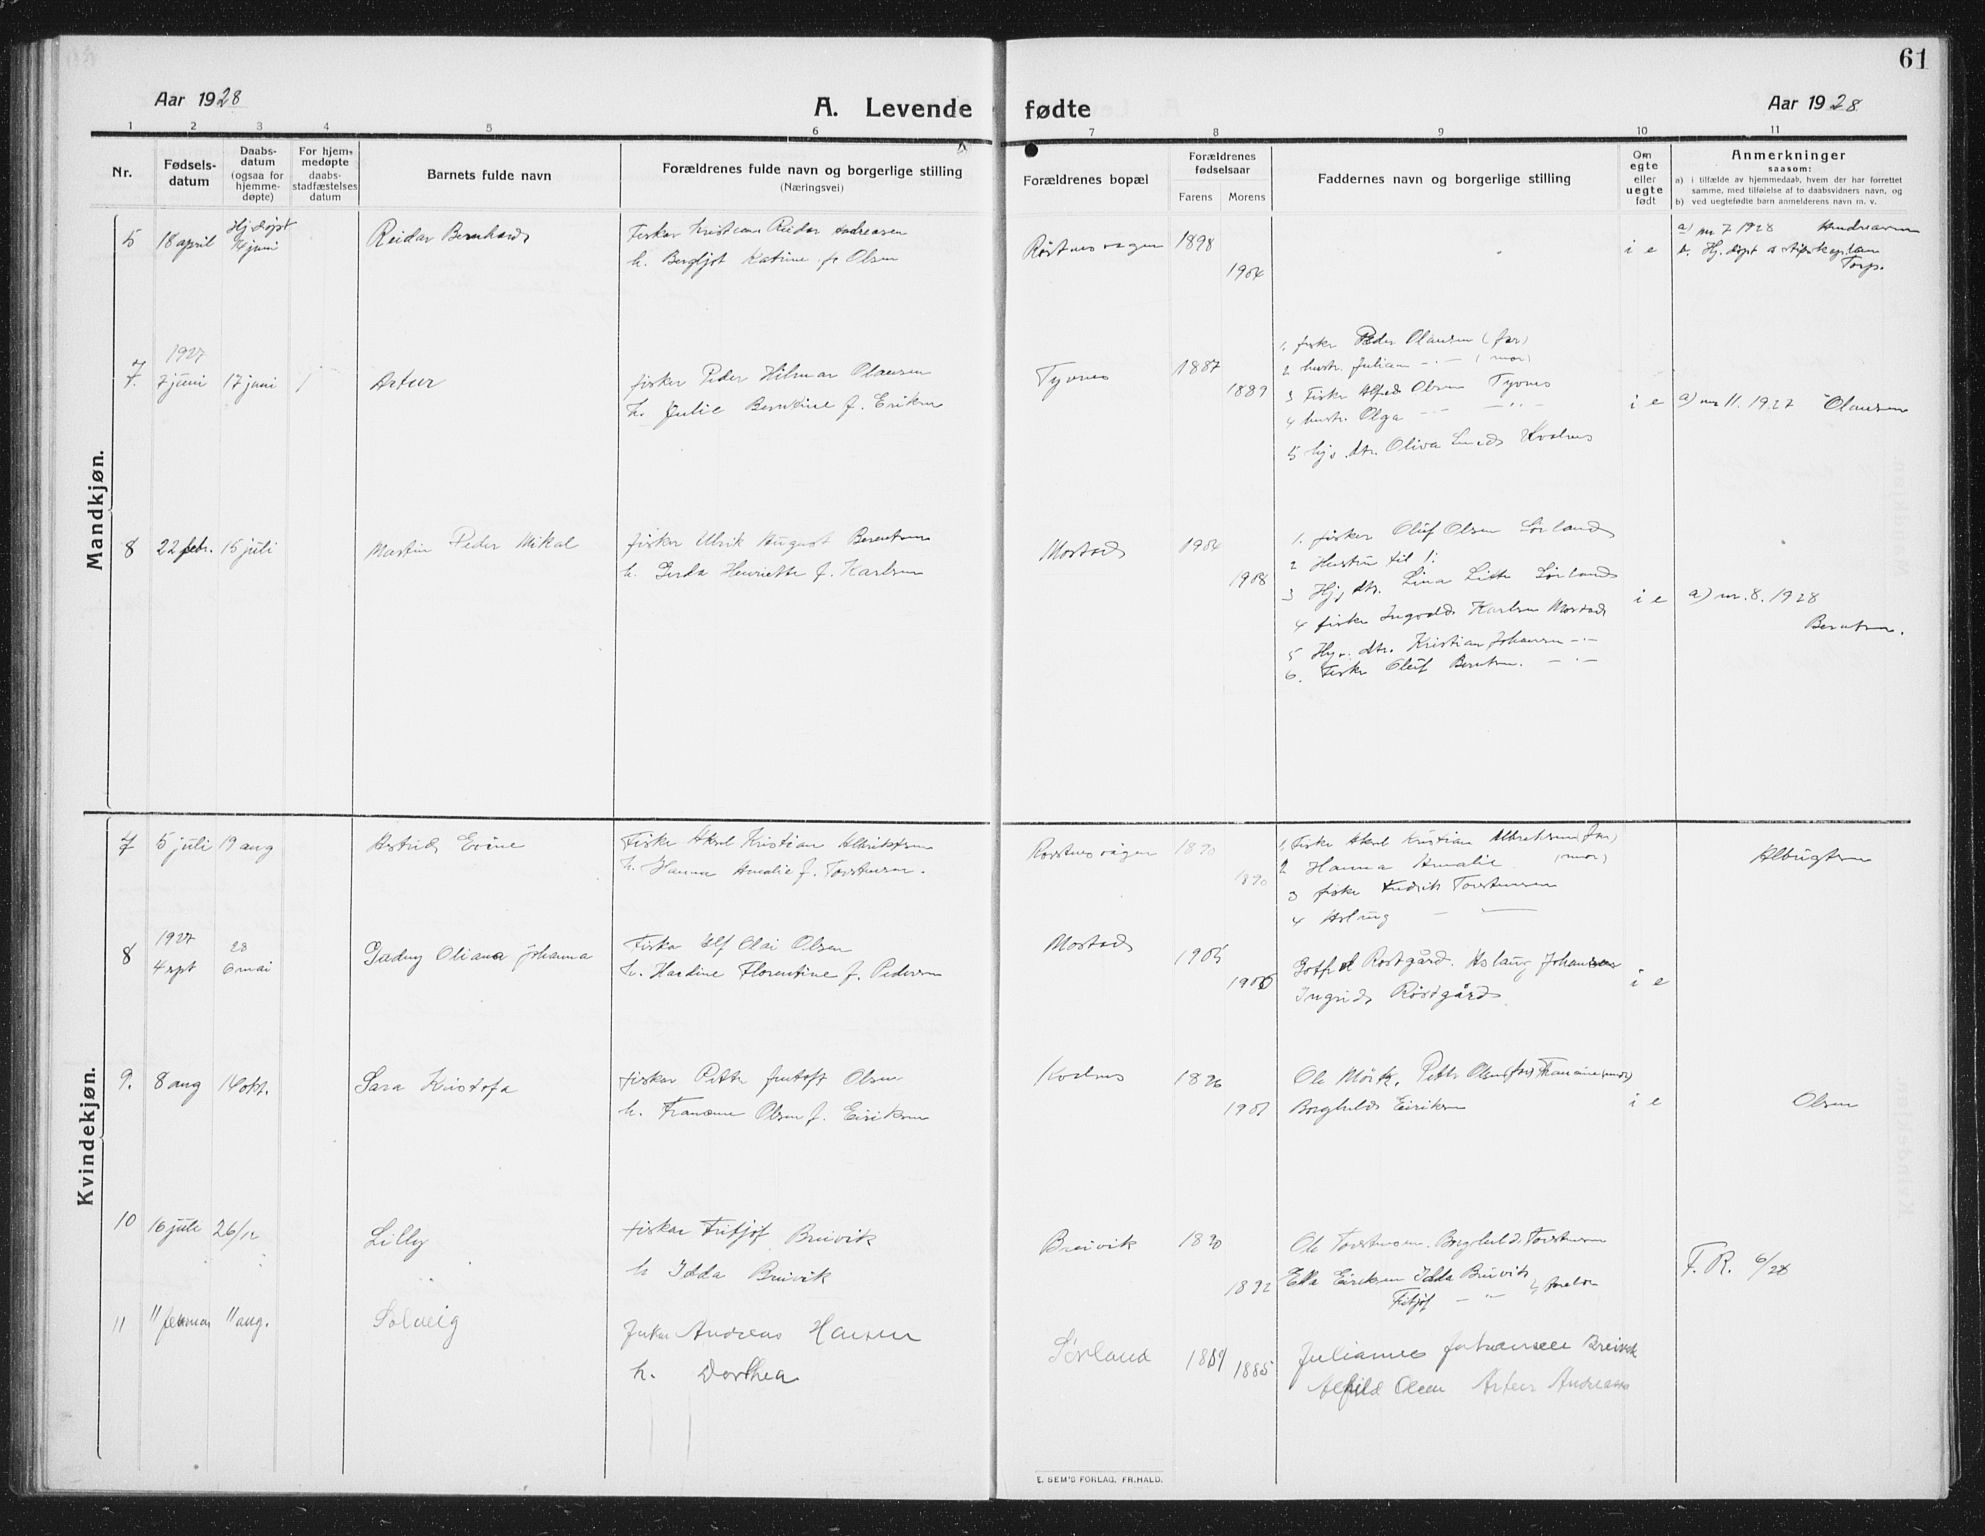 61
Aar 1928
A. Levende fødte
Aar 1928
1 2 3 4 5 6 7 8 9 10 11
Nr.
Fødsels-
datum
Daabs-
datum
(ogsaa for
hjemme-
døpte)
For hjem-
medøpte
daabs-
stadfæstelses
datum
Barnets fulde navn
Forældrenes fulde navn og borgerlige stilling
(Næringsvei)
Forældrenes bopæl
Forældrenes
fødselsaar
Farens Morens
Faddernes navn og borgerlige stilling
Om
egte
eller
uegte
født
Anmerkninger
saasom:
a) i tilfælde av hjemmedaab, hvem der har forrettet
samme, med tilføielse af to daabsvidners navn, og
b) ved uegtefødte barn anmelderens navn m. v.
Mandkjøn.
5 18 april Hj.døpt
juni
Reidar Bernhard
Fisker Kristian Reidar Andreasen
h. Bergljot Katrine f. Olsen
Røstnesvågen 1898
1904
i e
a) nr 7 1928 Andreasen
Hj. døpt
Torp.
7. 1927
7 juni 17 juni
Artur
fisker Peder Hilmar Olausen
h. Julie Berntine f. Eriksen
Tyvnes 1887
1889
1. fisker Peder Olausen (far)
2 hustr. Julian — (mor)
3 Fisker Alfred Olsen Tyvnes
4 hustr. Olga — —
5 hj. dtr. Oliva
i e
a) nr 11. 1927 Olausen
8 22 febr. 15 juli
Martin Peder Mikal
fisker Ulrik August Berentsen
h. Gerda Henriette f. Karlsen
Mostad 1904
1908
1. fisker Oluf Olsen Sørland
2 Hustru til 1:
3 Hj. dtr. Lina Sørland
4 fisker Ingvald Karlsen Mostad
5 Hj. dtr. Kristian Johansen — —
6. Fisker Oluf Berntsen. — —
i e
a) nr. 8. 1928
Berntsen.
Kvindekjøn.
7 5 juli 19 aug
Astrid Evine
Fisker Aksel Kristian Albriktsen
h. Hanna Amalie f. Torstensen.
Røstnesvågen 1890
1890
1. Fisker Aksel Kristian Albrektsen (far)
2 Hanna Amalie (mor)
3 fisker Fredrik Torstensen
4 Aslaug — —
Albrigtsen
8 1927 28
4 sept 6 mai
Gudny Oliana Johanna
Fisker Elf Olai Olsen
h. Hardine Florentine f. Pedersen
Mostad 1905
1906
Gotfred Røstgård. Aslaug Johansen
Ingrid Røstgård
i e
9. 8 aug 14 okt.
Sara Kristofa
fisker Petter Jentoft Olsen
h. Fransine Olsen f. Eiriksen
1896
1901
Ole Mørk, Petter Olsen (far) Fransine (mor)
Borghild Eiriksen
i e
Olsen
10 16 juli 26/12
Lilly
fisker Fritjof Breivik
h Idda Breivik
Breivik 1890
1892
Ole Torstensen. Borghild Torstensen
Ella Eiriksen Idda Breivik
Fritjof — " — foreldre
F. R. 6/28
11 11 februar 11 aug.
Solveig
fisker Andreas Hansen
h. Dorthea
Sørland 1889 1885
Julianne Johansen Breivik
Alfhild Olsen Artur Andreassen
E. SEM'S FORLAG, FR.HALD.